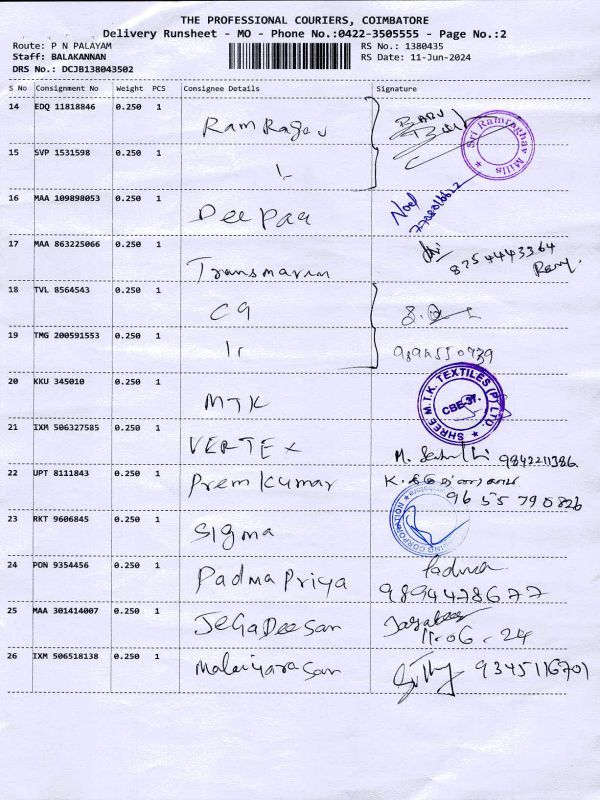 THE PROFESSIONAL COURIERS, COIMBATORE
Delivery Runsheet - MO - Phone No.:0422-3505555 - Page No.:2
Route: P N PALAYAM
Staff: BALAKANNAN
DRS No.: DCJB138043502
RS No.: 1380435
RS Date: 11-Jun-2024
S No Consignment No Weight PCS Consignee Details Signature
14 EDQ 11818846 0.250 1 Ram Ragav BABU
Sri Ramraghav Mills
15 SVP 1531598 0.250 1
16 MAA 109898053 0.250 1 Deepaa Noel
17 MAA 863225066 0.250 1 Transmarin 8254443364
18 TVL 8564543 0.250 1 C9
19 TMG 200591553 0.250 1
20 KKU 345010 0.250 1 MTK
SHREE M.T.K. TEXTILES (P) LTD
CBE-37.
21 IXM 506327585 0.250 1 VERTEX M. 9842211386
22 UPT 8111843 0.250 1 Prem Kumar 96 55 790826
23 RKT 9606845 0.250 1 Sigma
24 PON 9354456 0.250 1 Padma Priya Padma
9894478677
25 MAA 301414007 0.250 1 JeGaDeeSan
11.06.24
26 IXM 506518138 0.250 1 Malaiyarasan 9345116701